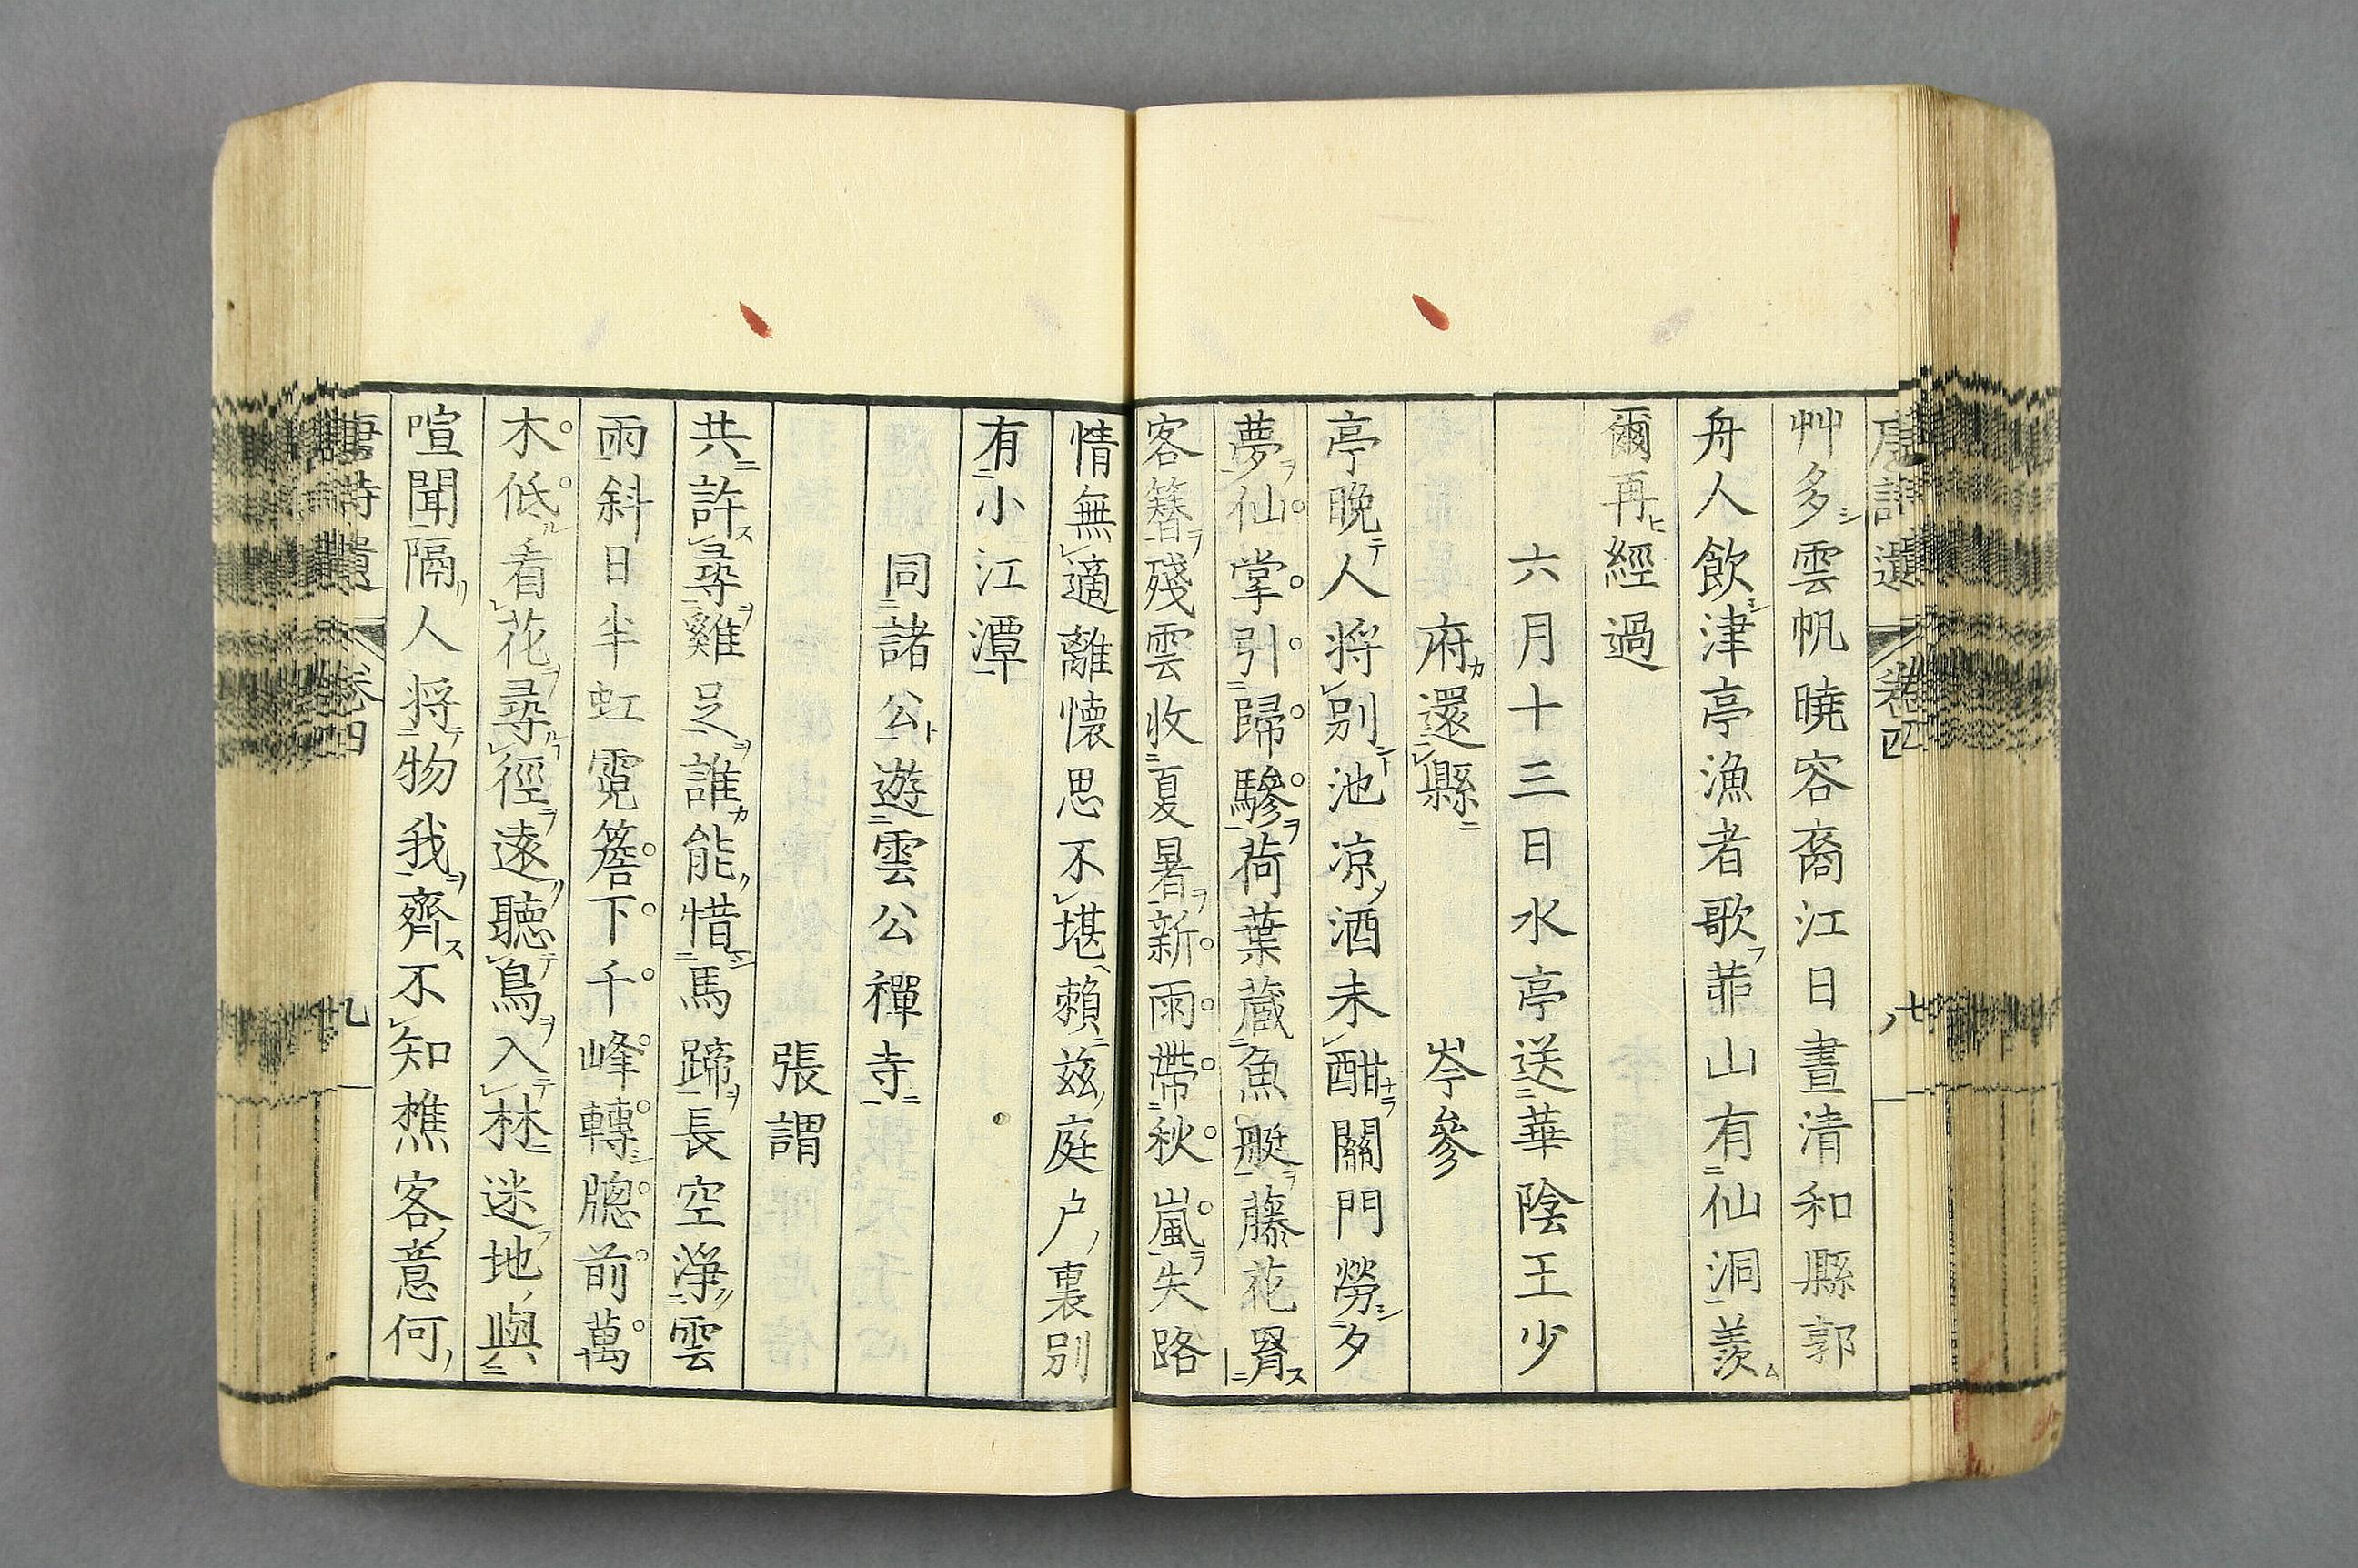 艸多雲帆曉容裔江日晝清和縣郭
舟人飲津亭漁者歌菲山有仙洞羨
爾再經過
六月十三日水亭送華陰王少
府還縣
岑參
亭晚人将別池凉酒未酣關門勞夕
夢仙掌引歸驂荷葉蔵魚艇藤花罥
客簪殘雲收夏暑新雨帶秋嵐失路
情無適離懷思不堪賴茲庭户裏別
有小江潭
同諸公遊雲公禪寺
張謂
共許尋雞足誰能惜馬蹄長空淨雲
雨斜日半虹霓簷下千峰轉牕前萬
木低看花尋徑遠聽鳥入林迷地與
喧聞隔人将物我齊不知樵客意何
唐詩遺
卷四
九